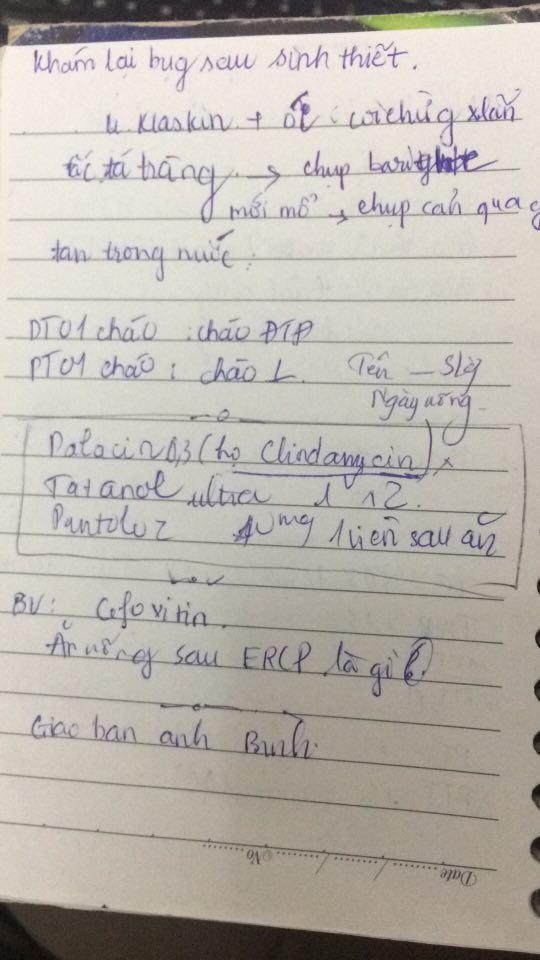 Khám lại bụg sau sinh thiết.
u Klaskin + : coi chừg xlấn
tắc tá tràng → chụp barit
mới mổ → chụp cản quag
tan trong nước.
DT01 cháo : cháo ĐTĐ
PT04 cháo : cháo L. Tên – Slg
Ngày uống
Dalacin 0,3 (họ Clindamycin) x
Tatanol ultra 1 x 2.
Pantoloz 40mg 1 viên sau ăn
BV: Cefoxitin.
Ăn uống sau ERCP là gì
Giao ban anh Bình.
Date
No